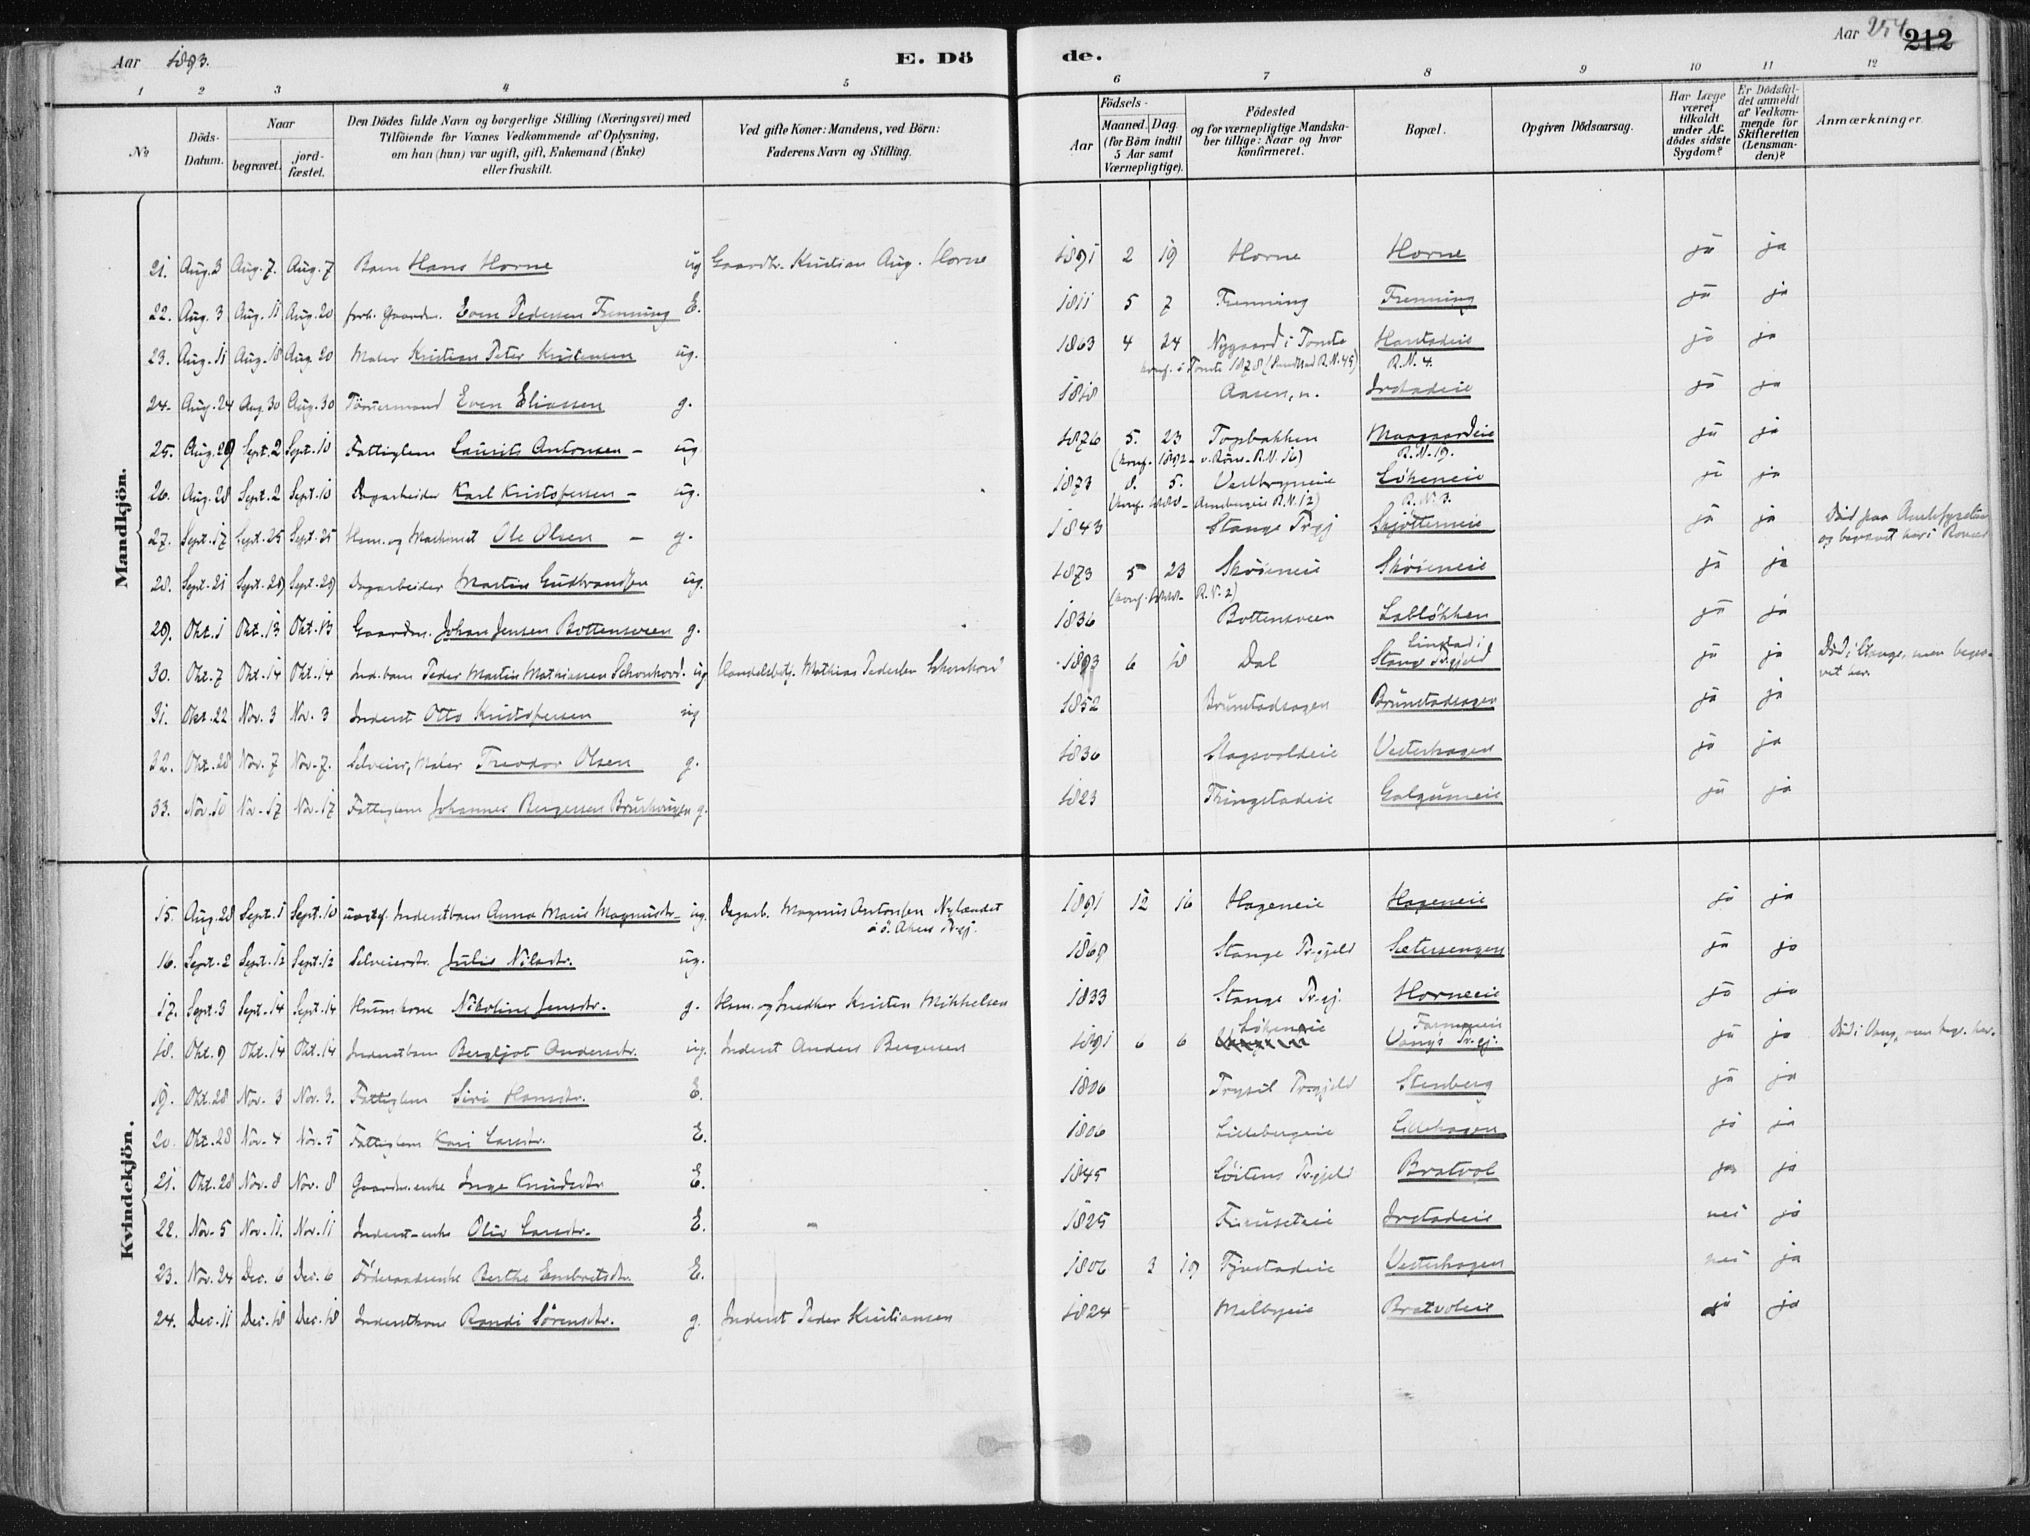 Aar 1893. E. Dö de. Aar 254 212
1 2 3 4 5 6 7 8 9 10 11 12
No Döds-Datum. Naar begravet. jord-fæstet. Den Dödes fulde Navn og borgerlige Stilling (Næringsvei) med Tilföiende for Voxnes Vedkommende af Oplysning, om han (hun) var ugift, gift, Enkemand (Enke) eller fraskilt. Ved gifte Koner: Mandens, ved Börn: Faderens Navn og Stilling. Födsels- Aar Maaned. Dag. (for Börn indtil 5 Aar samt Værnepligtige). Födested og for værnepligtige Mandskaber tillige: Naar og hvor konfirmeret. Bopæl. Opgiven Dödsaarsag. Har Læge været tilkaldt under Afdödes sidste Sygdom? Er Dödsfaldet anmeldt af Vedkommende for Skifteretten (Lensmanden)? Anmærkninger.
Mandkjön.
21. Aug. 3 Aug. 7. Aug. 7 Barn Hans Horne ug Gaardbr. Kristian Aug. Horne 1891 2 19 Horne Horne ja ja
22. Aug. 3 Aug. 11 Aug. 20 forh. Gaardm. Even Pedersen Frenning E. 1811 5 7 Frenning Frenning ja ja
23. Aug. 11 Aug. 18 Aug. 20 Maler Kristian Peter Kristensen ug. 1863 4 24 Nygaard i Tomte Harstadeie ja ja
konf. i Tomte 1878 R.N. 4.
24. Aug. 24 Aug. 30 Aug. 30 Tømmermand Even Eliassen g. 1818 Aasen, n. Irstadeie ja ja
25. Aug. 29 Sept. 2 Sept. 10 Fattiglem Laurits Antonsen ug 1876 5. 23 Topbakken Maagaardeie ja ja
(konf. 1892 R.N. 16) R.N. 19.
26. Aug. 28 Sept. 2 Sept. 10 Dagarbeider Karl Kristofersen ug. 1873 8. 5. Løkeneie ja ja
(konf. 1888 R.N. 12) R.N. 3.
27. Sept. 17 Sept. 25 Sept. 25 Husm. og Maskinist Ole Olsen g. 1843 Stange Prgj Skjøtterneie ja ja Død paa
og begravet her i
28. Sept. 21 Sept. 29 Sept. 29 Dagarbeider Martin Gudbrandsen ug. 1873 5 23 Skøieneie Skøieneie ja ja
(konf. 1888 R.N. 2)
29. Okt. 1 Okt. 13 Okt. 13 Gaardm. Johan Jensen Bottensveen g. 1836 Bottensveen Labløkken ja ja
30. Okt. 7 Okt. 14 Okt. 14 Ind. barn Peder Martin Mathiassen Schonhovd ug Handelsbetj. Mathias Pedersen Schonhovd 1893 6 18 Dal Linstad i Stange Prgjeld ja ja Død i Stange, men begravet her
31. Okt. 22 Nov. 3 Nov. 3 Inderst Otto Kristofersen ug 1852 Brunstadhagen Brunstadhagen ja ja
32. Okt. 28 Nov. 7 Nov. 7. Selveier, Maler Theodor Olsen g. 1836 Slagsvoldeie Vesterhagen ja ja
33. Nov. 10 Nov. 17 Nov. 17 Fattiglem Johannes Bergersen g. 1823 Thingstadeie Galgumeie ja ja
Kvindekjön.
15. Aug. 28 Sept. 1 Sept. 10 uægtef. Inderstbarn Anna Marie Magnusdtr. ug. Dagarb. Magnus Antonsen Nylændet 1891 12 16 Hageneie Hageneie ja ja
i Ø. Aker Prgj.
16. Sept. 2 Sept. 12 Sept. 12 Selveierdtr. Julie Nilsdtr. ug. 1868 Stange Prgjeld Sætersengen ja ja
17. Sept. 3 Sept. 14 Sept. 14 Husmkone Nikoline Jensdtr. g. Husm. og Snedker Kristen Mikkelsen 1833 Stange Prgj. Horneeie ja ja
18. Okt. 9 Okt. 14 Okt. 14 Inderstbarn Bergljot Andersdtr. ug. Inderst Anders Bergersen 1891 6 6 Løkeneie Vangs Prgj. ja ja Død i Vang, men begr. her.
19. Okt. 28 Nov. 3 Nov. 3. Fattiglem Siri Hansdtr. E. 1806 Trysil Prgjeld Stenberg ja ja
20. Okt. 28 Nov. 4 Nov. 5 Fattiglem Kari Larsdtr. E. 1806 Lillebergeie Lillehagen ja ja
21. Okt. 28 Nov. 8 Nov. 8 Gaardm.enke Inge Knudsdtr E. 1845 Løitens Prgjeld Bratvol ja ja
22. Nov. 5 Nov. 11. Nov. 11 Inderst-enke Oliv Larsdtr. E. 1825 Irstadeie nei ja
23. Nov. 24 Dec. 6 Dec. 6 Føderaadsenke Berthe Embretsdtr. E. 1806 3 19 Fjestadeie Vesterhagen nei ja
24. Dec. 11 Dec. 18 Dec. 18 Inderstkone Randi Sørensdtr. g. Inderst Peder Kristiansen 1824 Melbyeie Bratvoleie ja ja